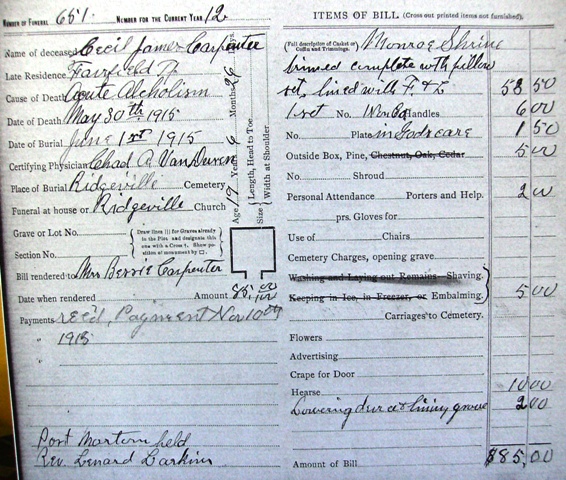 NUMBER OF FUNERAL 651. NUMBER FOR THE CURRENT YEAR 12
Name of deceased Cecil James Carpenter
Late Residence Fairfield Tp
Cause of Death Acute Alcholism
Date of Death May 30th 1915
Date of Burial June 1st 1915
Certifying Physician Chad A Van Duren
Place of Burial Ridgeville Cemetery
Funeral at house or Ridgeville Church
Grave or Lot No.
Section No.
Draw lines ||| for Graves already in the Plot and designate this one with a Cross †. Show position of monument by □.
Age 19 Years 9 Months 26 Dys.
Size Length, Head to Toe.
Width at Shoulder
Bill rendered to Mrs Bessie Carpenter
Date when rendered Amount 85.00
Payments rec'd, Payment Nov 10th
" 1915
"
Post Mortom field
Rev. Lenard Larkins
ITEMS OF BILL (Cross out printed items not furnished).
(Full description of Casket or Coffin and Trimmings). Monroe Shrine
trimed complete with pillow
set, lined with F. & L 58 50
1 set No. Handles 6 00
No. Plate in Gods care 1 50
Outside Box, Pine, Chestnut, Oak, Cedar 5 00
No. Shroud
Personal Attendance Porters and Help. 2 00
prs. Gloves for
Use of Chairs
Cemetery Charges, opening grave.
Washing and Laying out Remains Shaving.
Keeping in Ice, in Freezer, or Embalming. 5 00
Carriages to Cemetery.
Flowers
Advertising
Crape for Door
Hearse 10 00
Lowering & lining grave 2 00
Amount of Bill $85,00